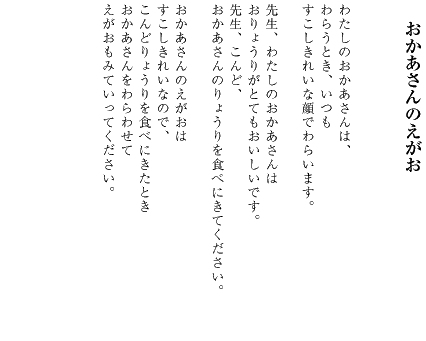 おかあさんのえがお
わたしのおかあさんは、
わらうとき、いつも
すこしきれいな顔でわらいます。
先生、わたしのおかあさんは
おりょうりがとてもおいしいです。
先生、こんど、
おかあさんのりょうりを食べにきてください。
おかあさんのえがおは
すこしきれいなので、
こんどりょうりを食べにきたとき
おかあさんをわらわせて
えがおもみていってください。